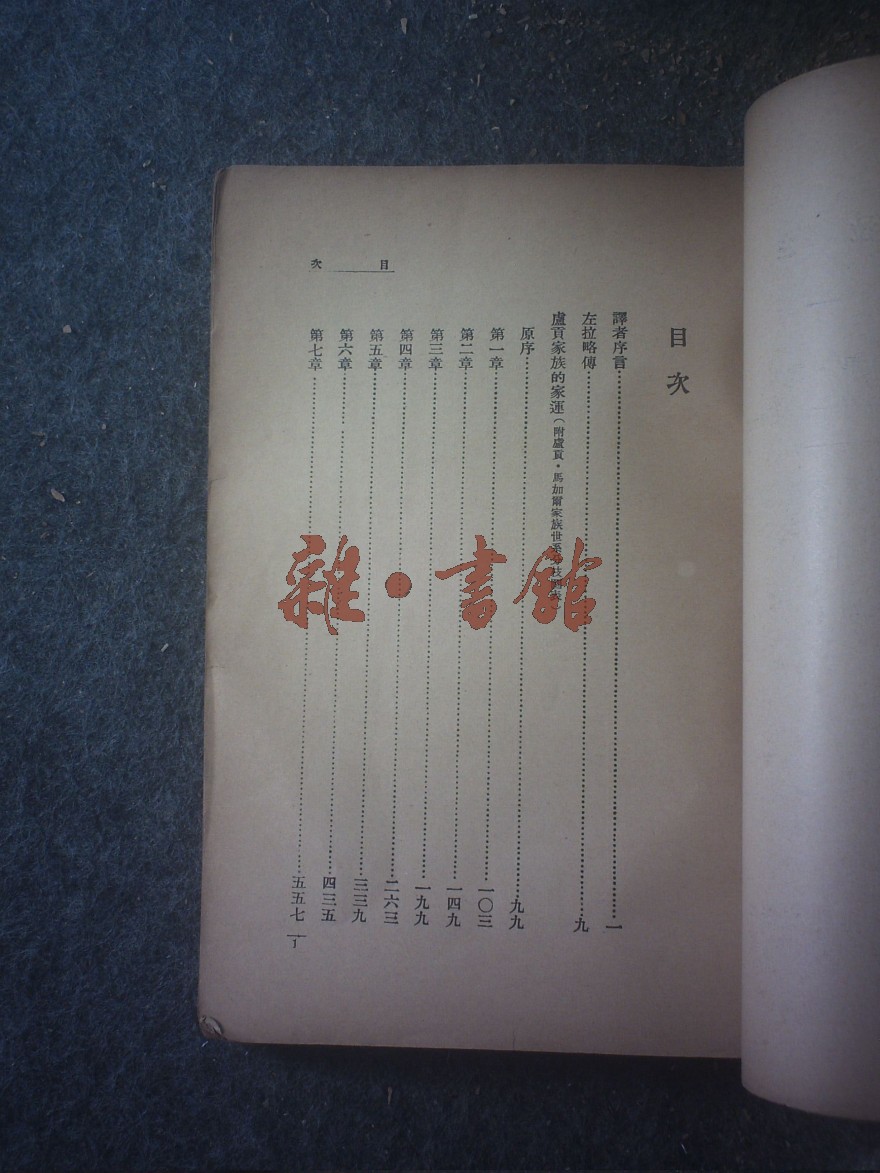 目次
譯者序言……一
左拉略傳……九
盧貢家族的家運（附盧貢·馬加爾家族世系
原序……九九
第一章……一〇三
第二章……一四九
第三章……一九九
第四章……二六三
第五章……三三九
第六章……四三五
第七章……五五七
目次
1
雜·書館